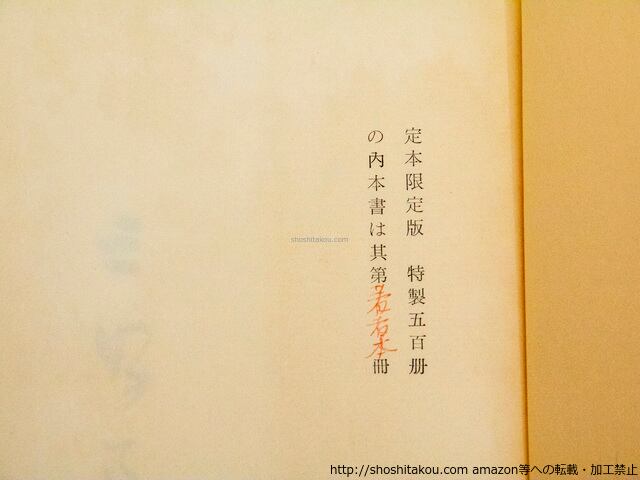 定本限定版　特製五百册
の內本書は其第著者本冊
shoshitakou.com
http://shoshitakou.com amazon等への転載・加工禁止